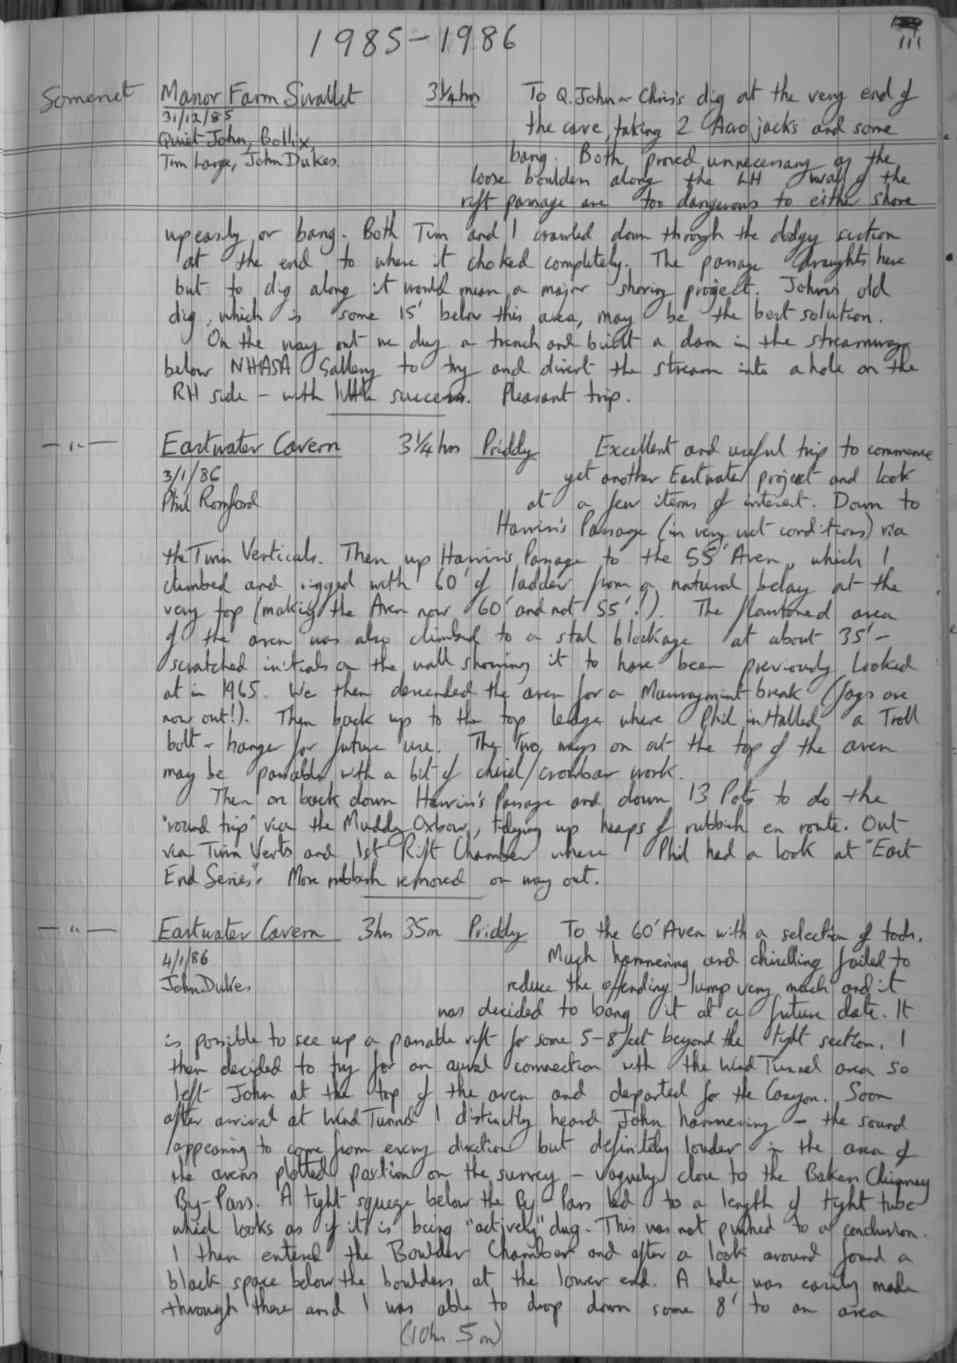 111
1985-1986
Somerset Manor Farm Swallet 3¼hrs To Q.John & Chris's dig at the very end of
31/12/85 the cave, taking 2 Acro jacks and some
Quiet John, Bollix,
Tim Large, John Dukes. bang. Both proved unnecessary as the
loose boulders along the LH wall of the
rift passage are too dangerous to either shore
up easily or bang. Both Tim and I crawled down through the dodgy section
at the end to where it choked completely. The passage draughts here
but to dig along it would mean a major shoring project. Johns old
dig, which is some 15' below this area, may be the best solution.
On the way out we dug a trench and built a dam in the streamway
below NHASA Gallery to try and divert the stream into a hole on the
RH side - with little success. Pleasant trip.
— " — Eastwater Cavern 3¼ hrs Priddy Excellent and useful trip to commence
3/1/86 yet another Eastwater project and look
Phil Romford at a few items of interest. Down to
Harris's Passage (in very wet conditions) via
the Twin Verticals. Then up Harris's Passage to the 55' Aven, which I
climbed and rigged with 60' of ladder from a natural belay at the
very top (making the Aven now 60' and not 55'!). The flowstoned area
of the aven was also climbed to a stal blockage at about 35' -
scratched initials on the wall showing it to have been previously looked
at in 1965. We then descended the aven for a Mauraymint break (fags are
now out!). Then back up to the top ledge where Phil installed a Troll
bolt & hanger for future use. The two ways on at the top of the aven
may be passable with a bit of chisel/crowbar work.
Then on back down Harris's Passage and down 13 Pots to do the
"round trip" via the Muddy Oxbow, tidying up heaps of rubbish en route. Out
via Twin Verts and 1st Rift Chamber where Phil had a look at "East
End Series". More rubbish removed on way out.
— " — Eastwater Cavern 3hrs 35m Priddy To the 60' Aven with a selection of tools.
4/1/86 Much hammering and chiselling failed to
John Dukes reduce the offending lump very much and it
was decided to bang it at a future date. It
is possible to see up a passable rift for some 5-8 feet beyond the tight section. I
then decided to try for an aural connection with the Wind Tunnel area so
left John at the top of the aven and departed for the Canyon. Soon
after arrival at Wind Tunnel I distinctly heard John hammering - the sound
appearing to come from every direction but definitely louder in the area of
the avens plotted position on the survey - vaguely close to the Baker's Chimney
By-Pass. A tight squeeze below the By Pass led to a length of tight tube
which looks as if it is being "actively" dug. This was not pushed to a conclusion.
I then entered the Boulder Chamber and after a look around found a
black space below the boulders at the lower end. A hole was easily made
through these and I was able to drop down some 8' to an area
(10hrs 5m)